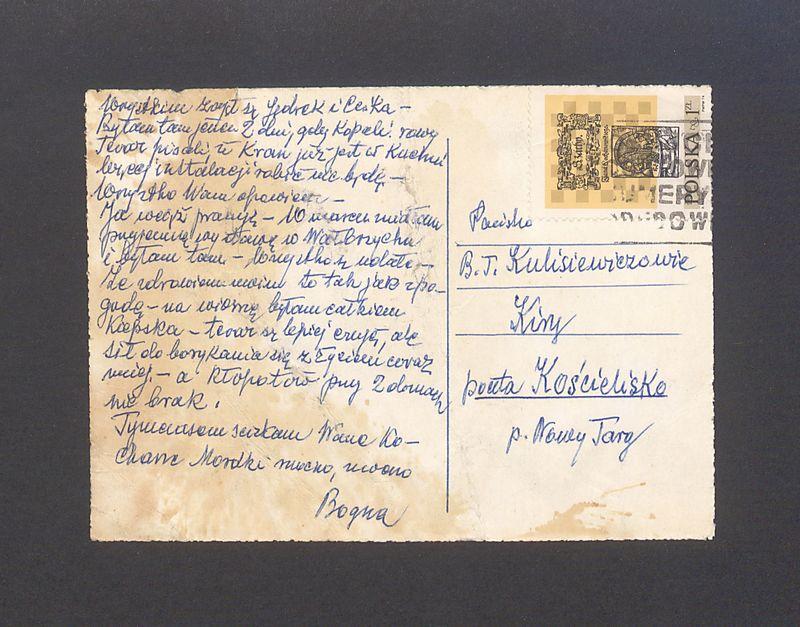 Wszystkim zajął się Jędrek i Cesia –
Byłam tam jeden 2 dni, gdy kopali rowy
Teraz pisali że Kran już jest w Kuchni
więcej instalacji robić nie będę –
Wszystko Wam opowiem –
Ja wciąż pracuję – W marcu miałam
przyjemną wystawę w Wałbrzychu
i byłam tam – Wszystko się udało –
Ze zdrowiem moim to tak jak z po-
godą – na wiosnę byłam całkiem
Kiepska – teraz się lepiej czuję, ale
sił do borykania się z życiem coraz
mniej – a kłopotów przy 2 domach
nie brak.
Tymczasem ściskam Wasze Ko-
chane Mordki mocno, mocno
Bogna
POLSKA
1 ZŁ
Państwo
B. T. Kulisiewiczowie
Kiry
poczta Kościelisko
p. Nowy Targ